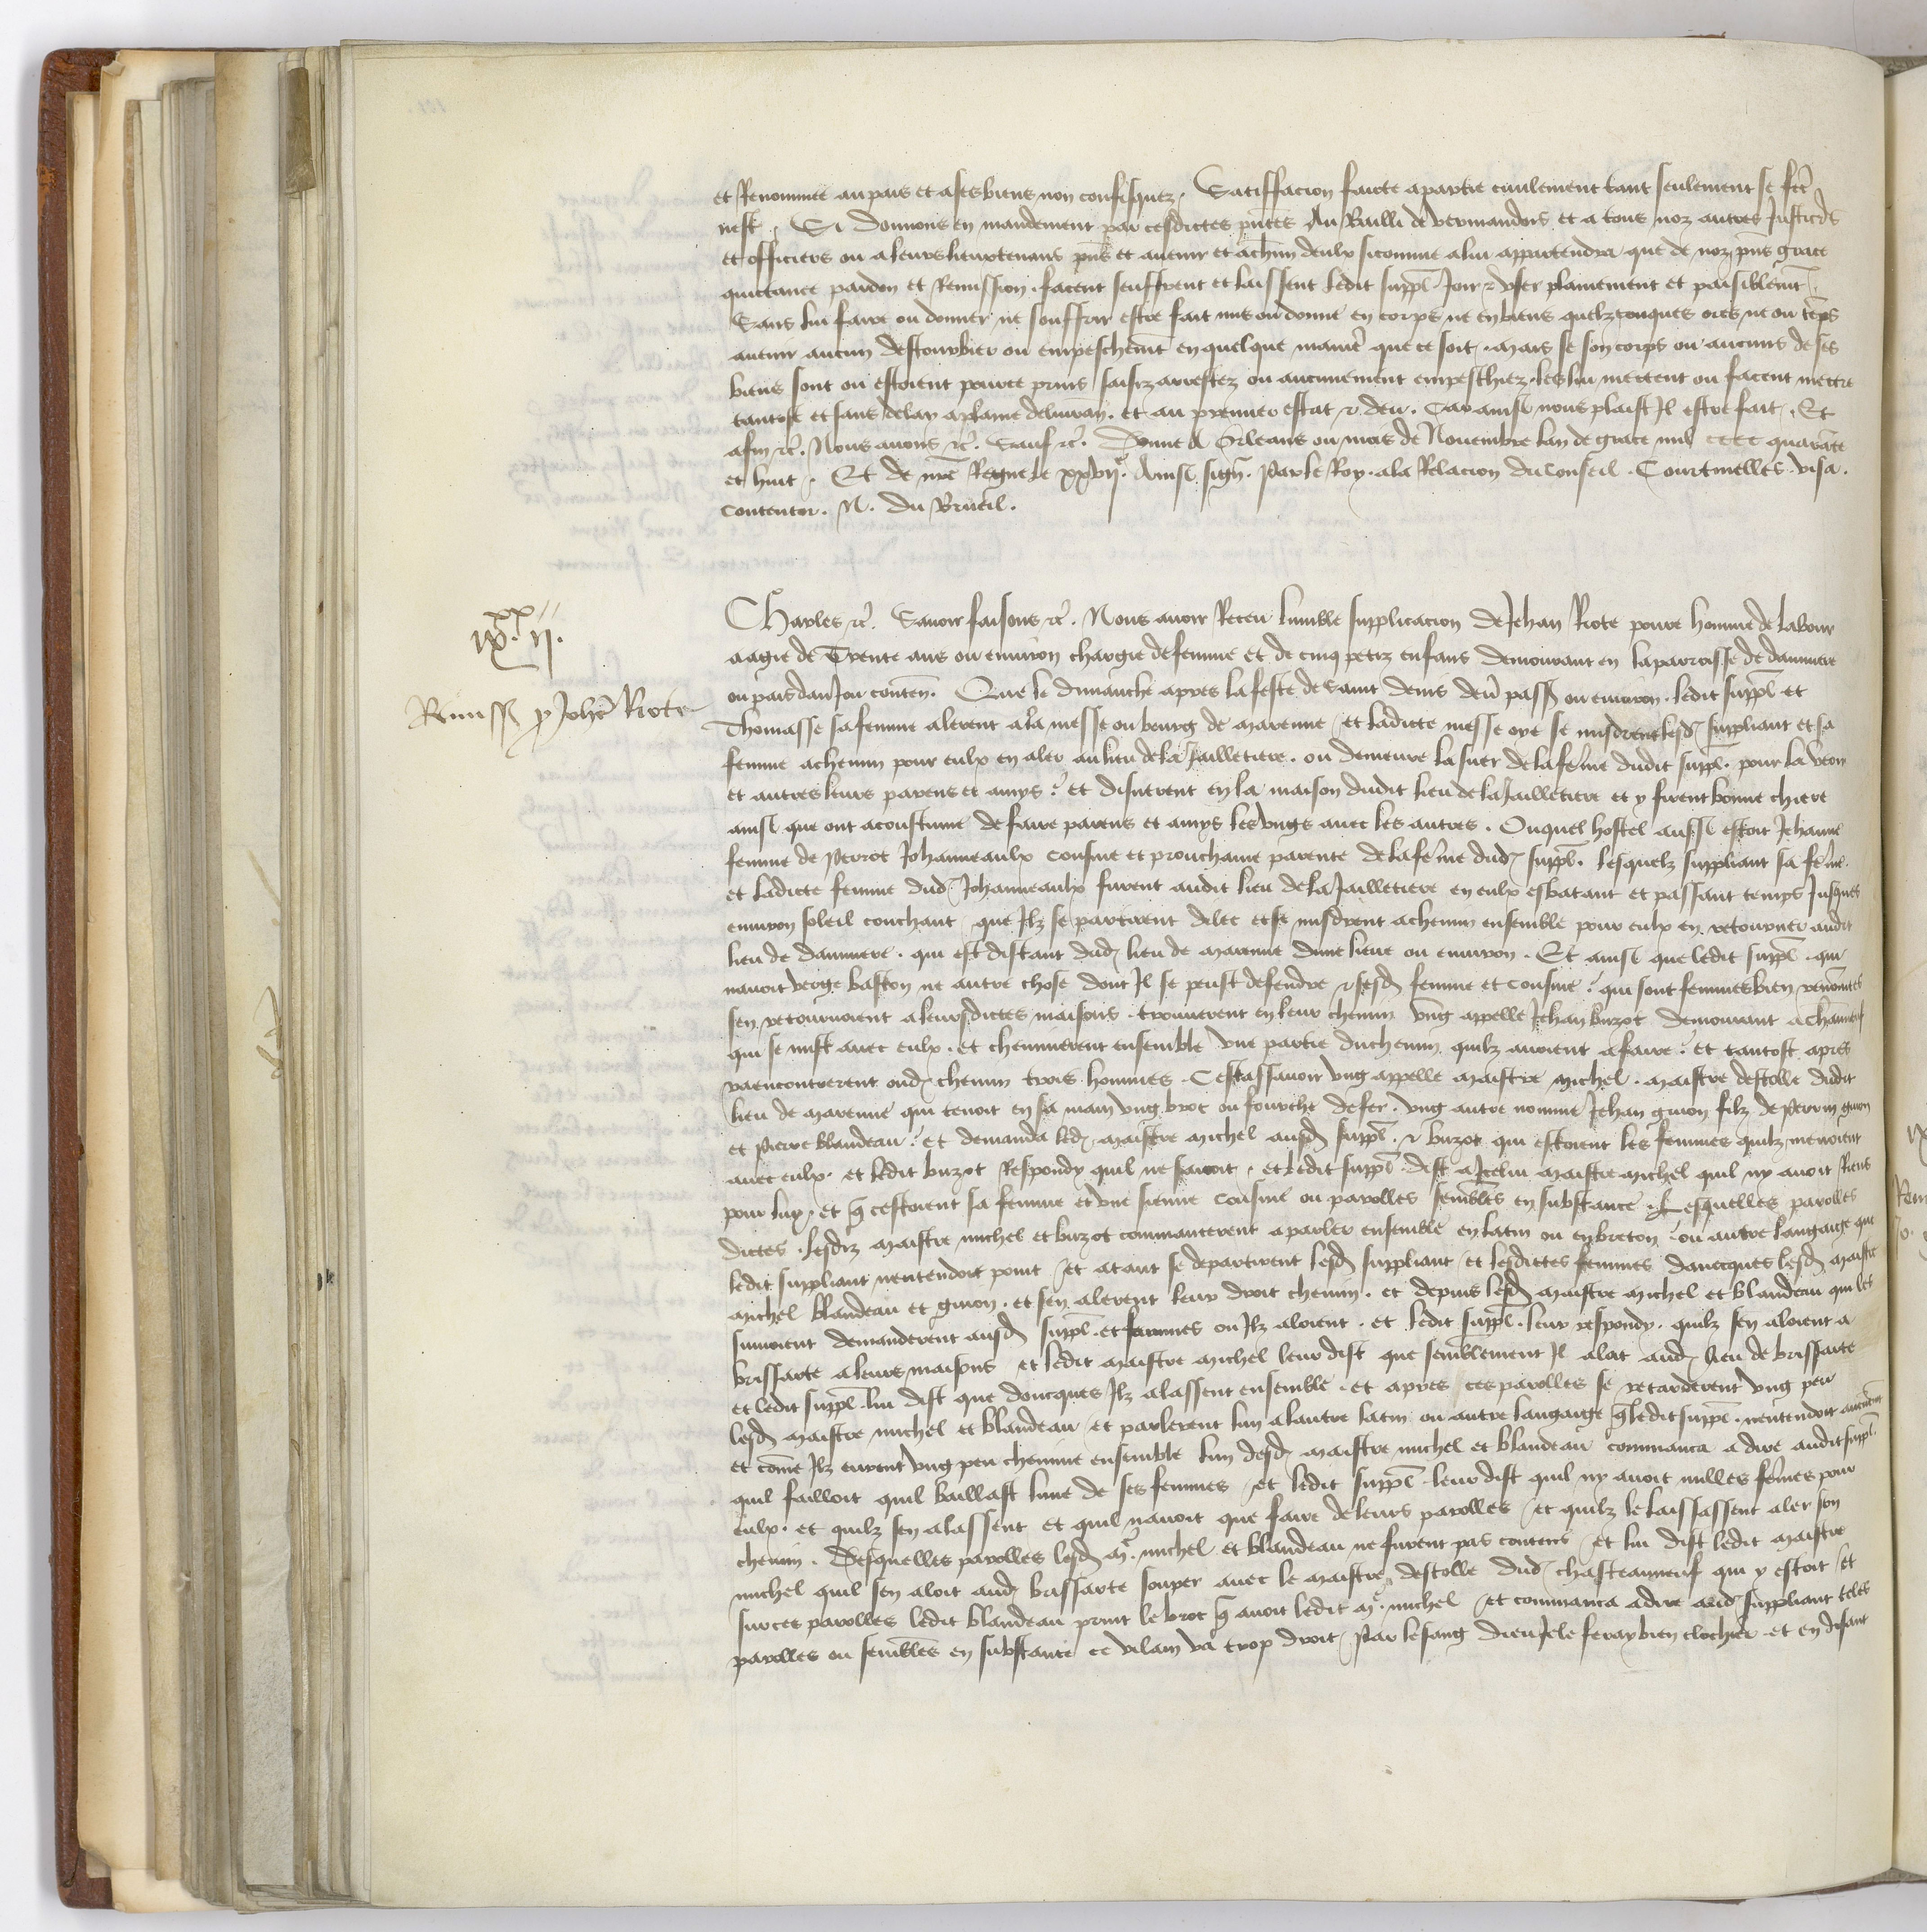 et Renommee au pais et a ses biens non confisquez. Satiffacion faicte a partie ciuilement tant seulement se fcē
nest. Si Donnons en mandement par cesdictes pntes Au Bailli de vermandois et a tous noz autres Justicēs
et officiers ou a leurs lieuxtenans pñs et auenir et a chūn deulx sicomme a lui appartendra que de noz pñs grace
quictance pardon et Remission. facent seuffrent et laissent ledit suppl Joir & vser plainement et paisiblemt.
Sans lui faire ou donner ne souffrir estre fait mis ou donne en corps ne en biens quelzconques ores ne ou tēps
auenir aucun destourbier ou empeschemt en quelque manie que ce soit. mais se son corps ou aucuns de ses
biens sont ou estoient pource prins saisiz arrestez ou aucunement empeschiez. les lui mectent ou facent mectre
tantost et sans delay a plaine deliuran. et au premier estat & deu. Car ainsi nous plaist Il estre fait. Et
afin &c. Nous auons &c. Sauf &c. Donne A Orleans ou mois de Nouembre lan de grace mil cccc quarāte
et huit. Et de nre Regne le xxvij.e Ainsi sign. Par le Roy. a la Relacion du Conseil. Courtinelles. visa.
contentor. N. du Brueil.
ix.xx ij.
Charles &c. Sauoir faisons &c. Nous auoir Receu lumble supplicacion de Jehan Riote poure homme de labour
aagie de Trente ans ou enuiron chargie de femme et de cinq petiz enfans demourant en la parroisse de daumere
ou pais danjou conten. Que le dimanche apres la feste de saint denis der pass ou enuiron. ledit suppl. et
Remiss p Johē Riote
Thomasse sa femme alerent a la messe ou bourg de marenne et ladicte messe oye se misdrent lesd suppliant et sa
femme a chemin pour eulx en aler au lieu de la Jailletiere. ou demeure la suer de la fēme dudit suppl. pour la veoir
et autres leurs parens et amys. et disnerent en la maison dudit lieu de la Jailletiere et y firent bonne chiere
ainsi que ont acoustume de faire parens et amys les vngs auec les autres. Ouquel hostel aussi estoit Jehanne
femme de Perrot Johanneaulx cousine et prouchaine parente de la fēme dud suppl. lesquelz suppliant sa fēme.
et ladicte femme dud Johanneaulx furent audit lieu de la Jailletiere en eulx esbatant et passant temps Jusques
enuiron soleil couchant que Ilz se partirent dilec et se misdrent a chemin ensemble pour eulx en retourner audit
lieu de daumere. qui est distant dud lieu de marenne dune lieue ou enuiron. Et ainsi que ledit suppl. qui
nauoit verge baston ne autre chose dont Il se peust defendre & sesd femme et cousine. qui sont femmes bien renommees
sen retournoient a leursdictes maisons. trouuerent en leur chemin vng appelle Jehan buzot demourant a chauneuf
qui se mist auec eulx. et cheminerent ensemble vne partie du chemin quilz auoient a faire. et tantost apres
raencontrerent oud chemin trois hommes. Cestassauoir vng appelle maistre michel. maistre descolle dudit
lieu de marenne qui tenoit en sa main vng broc ou fourche de fer. vng autre nomme Jehan guion filz de Perrin guion
et Pierre blandeau. et demanda led maistre michel ausd suppl. & buzot qui estoient les femmes quilz menoient
auec eulx. et ledit buzot Respondy quil ne sauoit. et ledit suppl. dist a Icelui maistre michel quil ny auoit Riens
pour luy. et q cestoient sa femme et vne sienne cousine ou parolles semblēs en substance. Lesquelles parolles
dictes. lesdiz maistre michel et buzot commancerent a parler ensemble en latin ou en breton ou autre langaige que
ledit suppliant nentendoit point. et atant se departirent lesd suppliant et lesdictes femmes dauecques lesd maistre
michel blandeau et guion. et sen alerent leur droit chemin. et depuis lesd maistre michel et blandeau qui les
suiuoient demanderent ausd suppl. et femmes ou Ilz aloient. et ledit suppl. leur respondy. quilz sen aloient a
brissarte a leurs maisons et ledit maistre michel leur dist que semblement Il aloit aud lieu de brissarte
et ledit suppl. lui dist que doncques Ilz alassent ensemble. et apres ces parolles se retarderent vng peu
lesd maistre michel et blandeau et parlerent lun a lautre latin ou autre langaige q ledit suppl. nentendoit aucunemt
et come Ilz eurent vng peu chemine ensemble lun desd maistre michel et blandeau commanca a dire audit suppl.
quil failloit quil baillast lune de ses femmes et ledit suppl. leur dist quil ny auoit nulles fēmes pour
eulx. et quilz sen alassent et quil nauoit que faire de leurs parolles et quilz le laissassent aler son
chemin. Desquelles parolles lesd me. michel et blandeau ne furent pas contens et lui dist ledit maistre
michel quil sen aloit aud brissarte souper auec le maistre descolle dud chasteauneuf qui y estoit et
sur ces parolles ledit blandeau print le broc q auoit ledit me. michel et commanca a dire aud suppliant teles
parolles ou semblēs en substance ce vilain va trop droit par le sang dieu Je le feray bien clochier et en disant